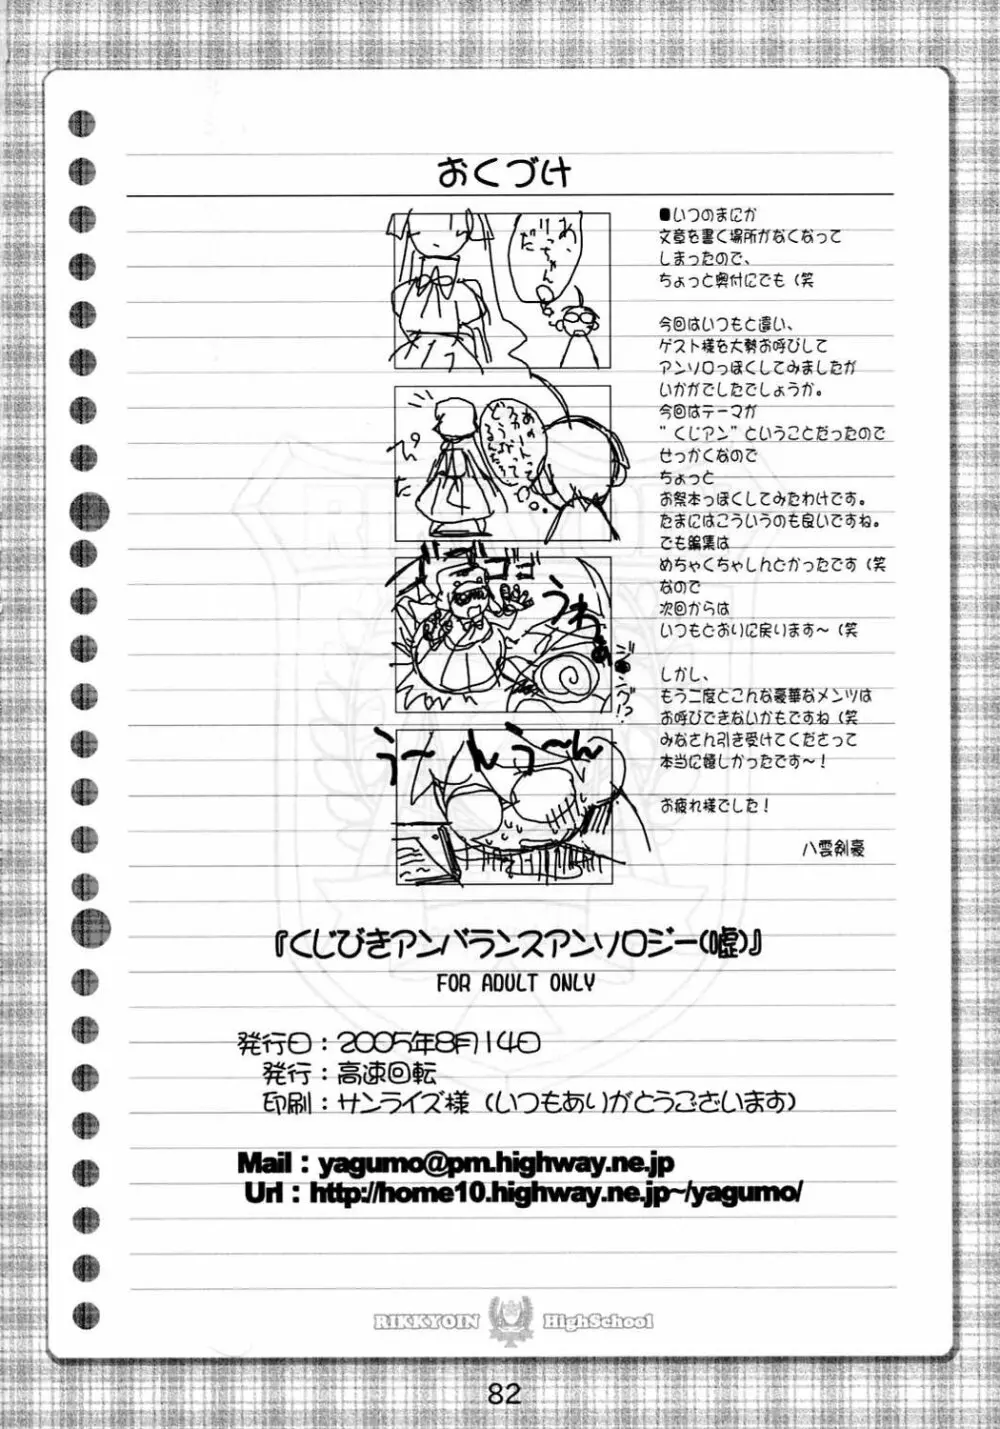 おくづけ
あ、
りっちゃん
だ
■いつのまにか
文章を書く場所がなくなって
しまったので、
ちょっと奥付にでも（笑
今回はいつもと違い、
ゲスト様を大勢お呼びして
アンソロっぽくしてみましたが
いかがでしたでしょうか。
今回はテーマが
“くじアン”ということだったので
せっかくなので
ちょっと
お祭本っぽくしてみたわけです。
たまにはこういうのも良いですね。
でも編集は
めちゃくちゃしんどかったです（笑
なので
次回からは
いつもどおりに戻ります～（笑
しかし、
もう二度とこんな豪華なメンツは
お呼びできないかもですね（笑
みなさん引き受けてくださって
本当に嬉しかったです～！
お疲れ様でした！
八雲剣豪
ゴゴゴゴ
うーんうーん
『くじびきアンバランスアンソロジー(嘘)』
FOR ADULT ONLY
発行日：2005年8月14日
発行：高速回転
印刷：サンライズ様（いつもありがとうございます）
Mail：yagumo@pm.highway.ne.jp
Url：http://home10.highway.ne.jp~/yagumo/
RIKKYOIN HighSchool
82